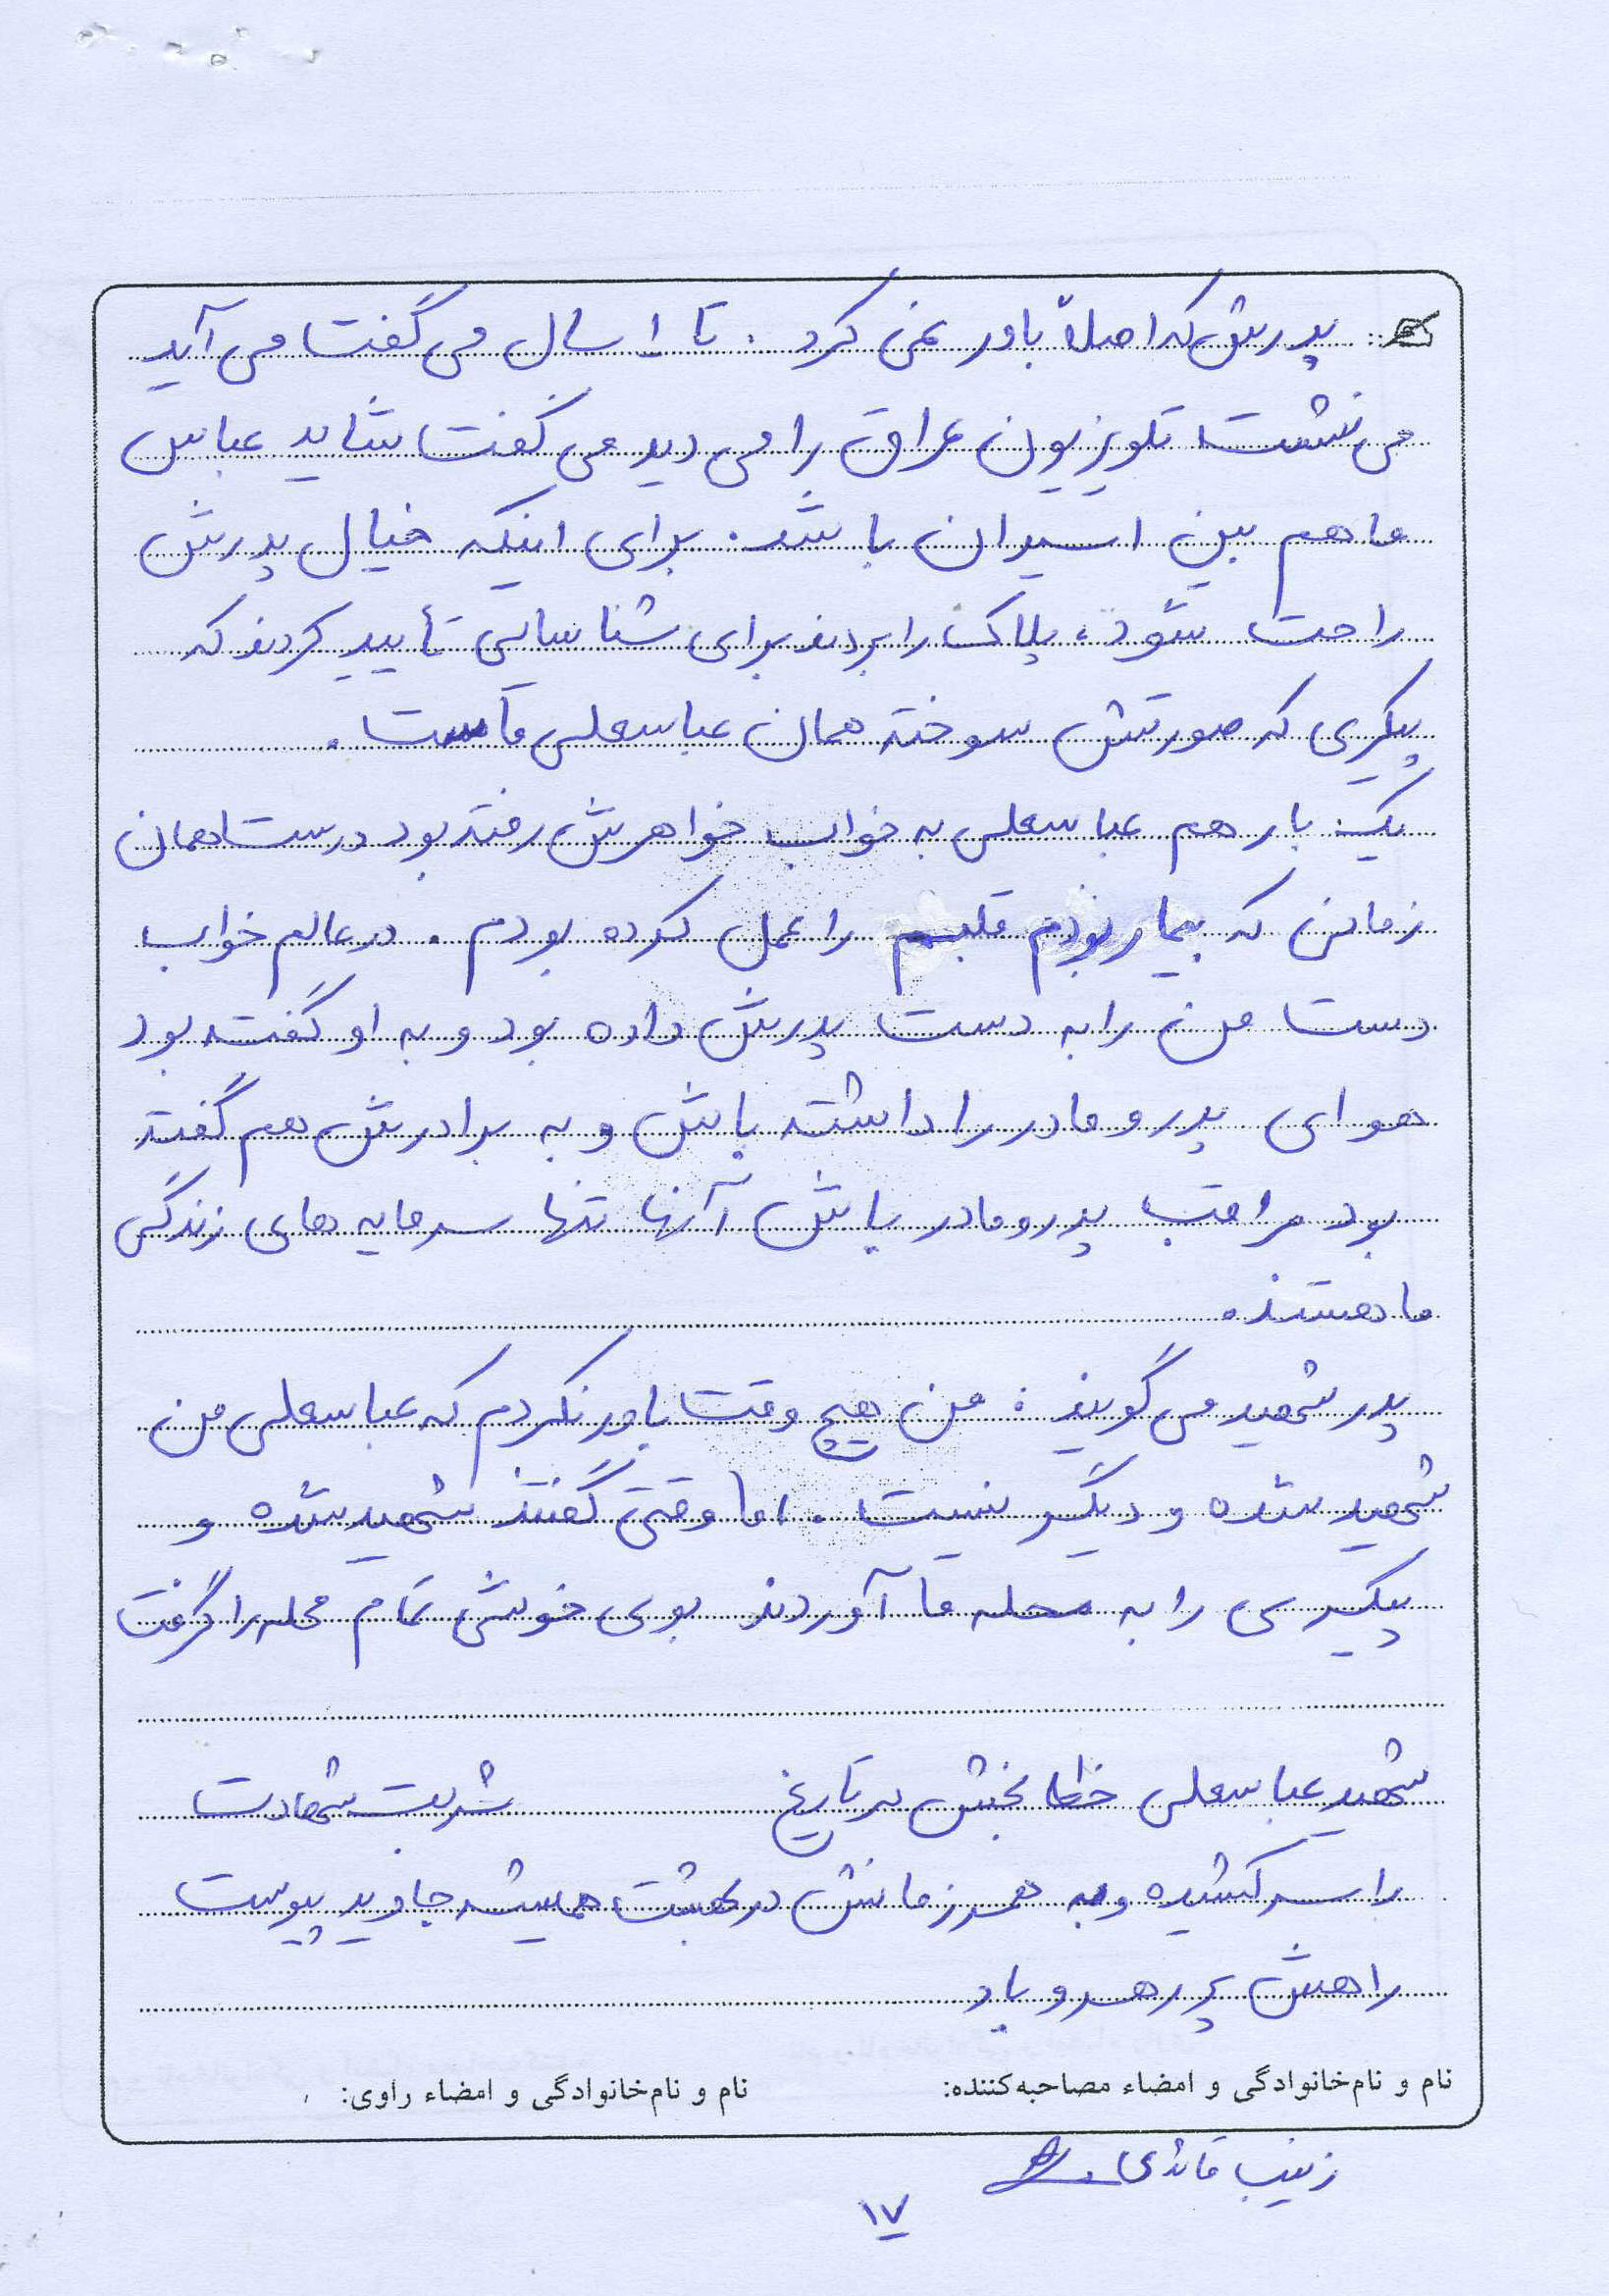 پدرش که اصلاً باور نمی کرد . تا ۱۰ سال می گفت می آید
می نشست تلویزیون عراق را می دید می گفت شاید عباس
ما هم بین اسیران باشد. برای اینکه خیال پدرش
راحت شود، پلاک را بردند برای شناسایی تأیید کردند که
پیکری که صورتش سوخته همان عباسعلی ماست .
یک بار هم عباسعلی به خواب خواهرش رفته بود درست همان
زمانی که بیمار بودم قلبم را عمل کرده بودم . در عالم خواب
دست من را به دست پدرش داده بود و به او گفته بود
هوای پدر و مادر را داشته باش و به برادرش هم گفته
بود مراقب پدر و مادر باش آنها تنها سرمایه های زندگی
ما هستند.
پدر شهید می گویند : من هیچ وقت باور نکردم که عباسعلی من
شهید شده و دیگر نیست . اما وقتی گفتند شهید شده و
پیکری را به محله ما آوردند بوی خوشی تمام محله را گرفت
شهید عباسعلی خطابخش در تاریخ شربت شهادت
را سر کشیده و به همرزمانش در بهشت همیشه جاوید پیوست
راهش پر رهرو باد
نام و نام‌خانوادگی و امضاء مصاحبه‌کننده: نام و نام‌خانوادگی و امضاء راوی:
زینب قائدی
۱۷